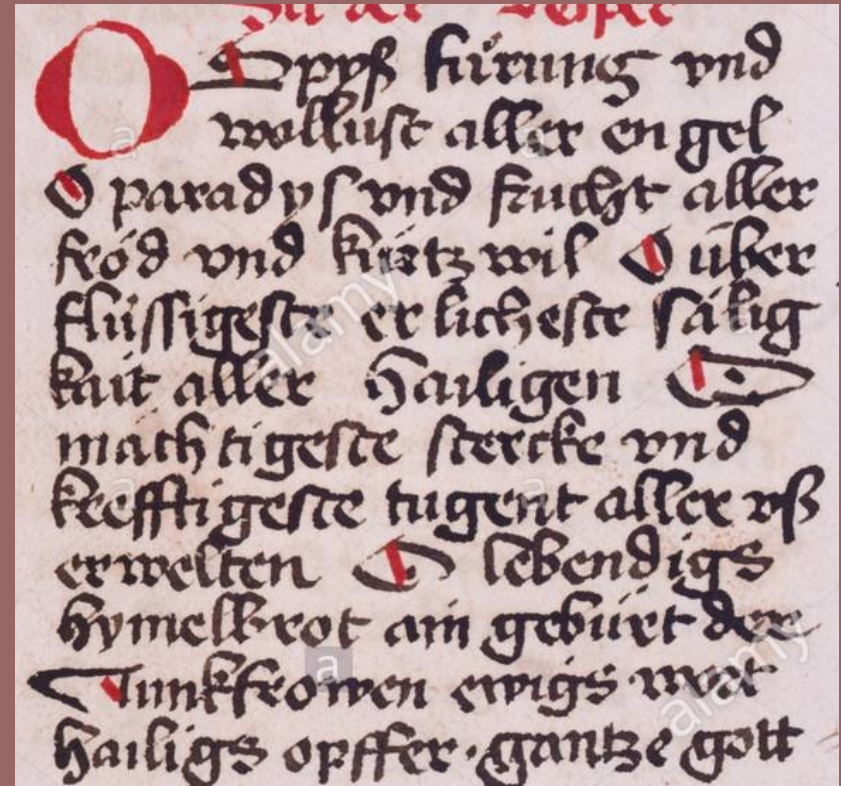 Zu der Vesper
O Spyß fürung vnd
wollust aller engel
O paradys vnd frucht aller
fröd vnd kurtzwil O über
flüssigeste erlicheste sälig
kait aller Hailigen O
mächtigeste stercke vnd
krefftigeste tugent aller vß
erwelten O lebendigs
hymelbrot ain geburt der
Junkfrowen ewigs wort
hailigs opffer · gantze gott
alamy
alamy
a